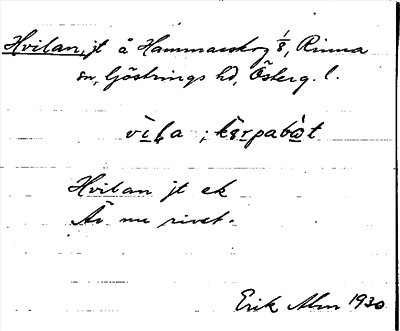 Hvilan, jt å Hammarskog 1/8, Rinna
sn, Göstrings hd, Österg. l.
vi̱la ;
Hvilan jt ek
Är nu rivet.
Erik Alm 1930